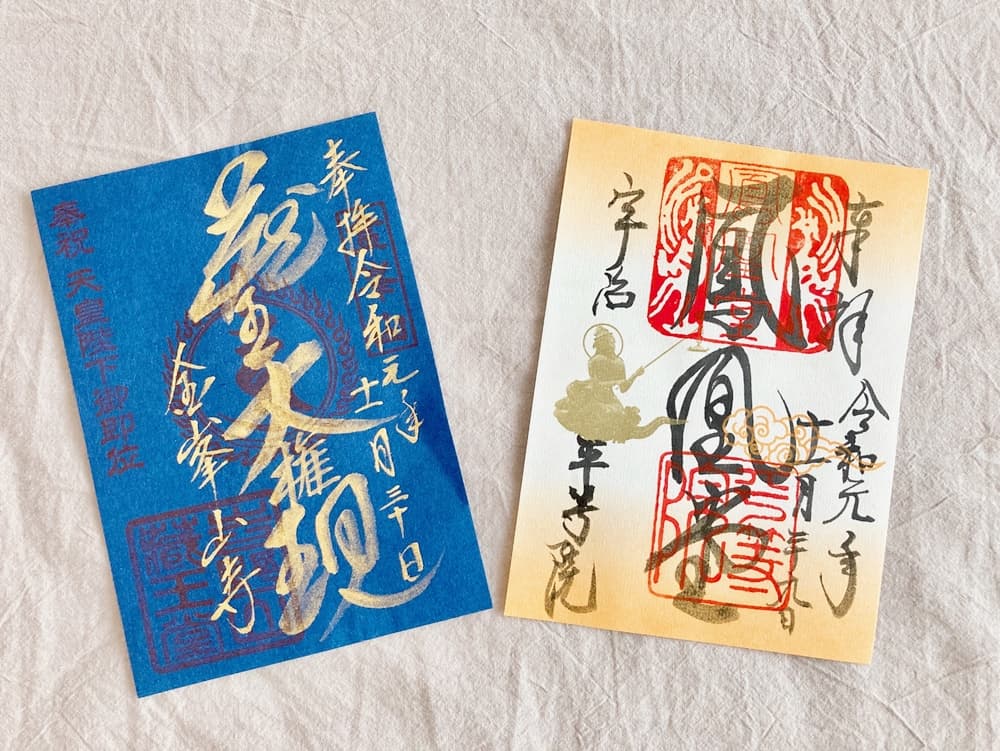 奉拝 令和元年
十一月三十日
蔵王大権現
金峯山寺
奉祝 天皇陛下御即位
藏王堂
奉拝 令和元年
十一月
鳳凰堂
宇治 平等院